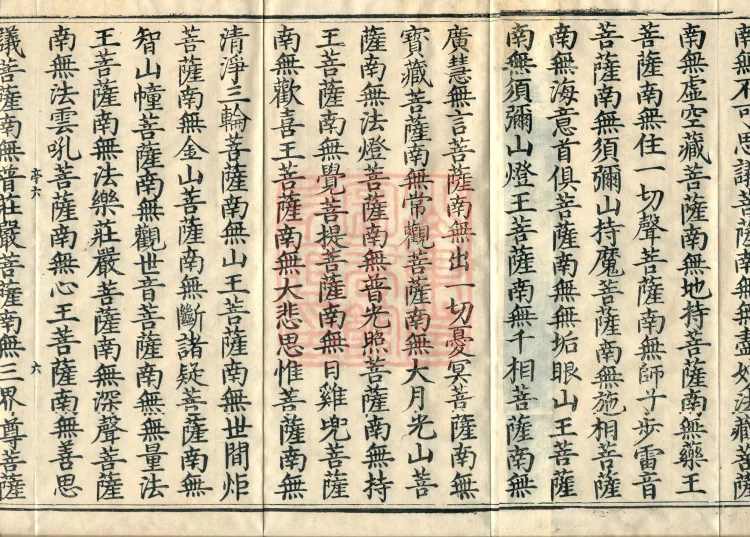 南無不可思議菩薩南無盡妙法藏菩薩
南無虛空藏菩薩南無地持菩薩南無藥王
菩薩南無住一切聲菩薩南無師子步雷音
菩薩南無須彌山持魔菩薩南無施相菩薩
南無海意首俱菩薩南無無垢眼山王菩薩
南無須彌山燈王菩薩南無千相菩薩南無
廣慧無言菩薩南無出一切憂冥菩薩南無
寶藏菩薩南無常觀菩薩南無大月光山菩
薩南無法燈菩薩南無普光照菩薩南無持
王菩薩南無覺菩提菩薩南無日雞兜菩薩
南無歡喜王菩薩南無大悲思惟菩薩南無
清淨三輪菩薩南無山王菩薩南無世間炬
菩薩南無金山菩薩南無斷諸疑菩薩南無
智山幢菩薩南無觀世音菩薩南無無量法
王菩薩南無法樂莊嚴菩薩南無深聲菩薩
南無法雲吼菩薩南無心王菩薩南無善思
六
議菩薩南無普莊嚴菩薩南無三界尊菩薩